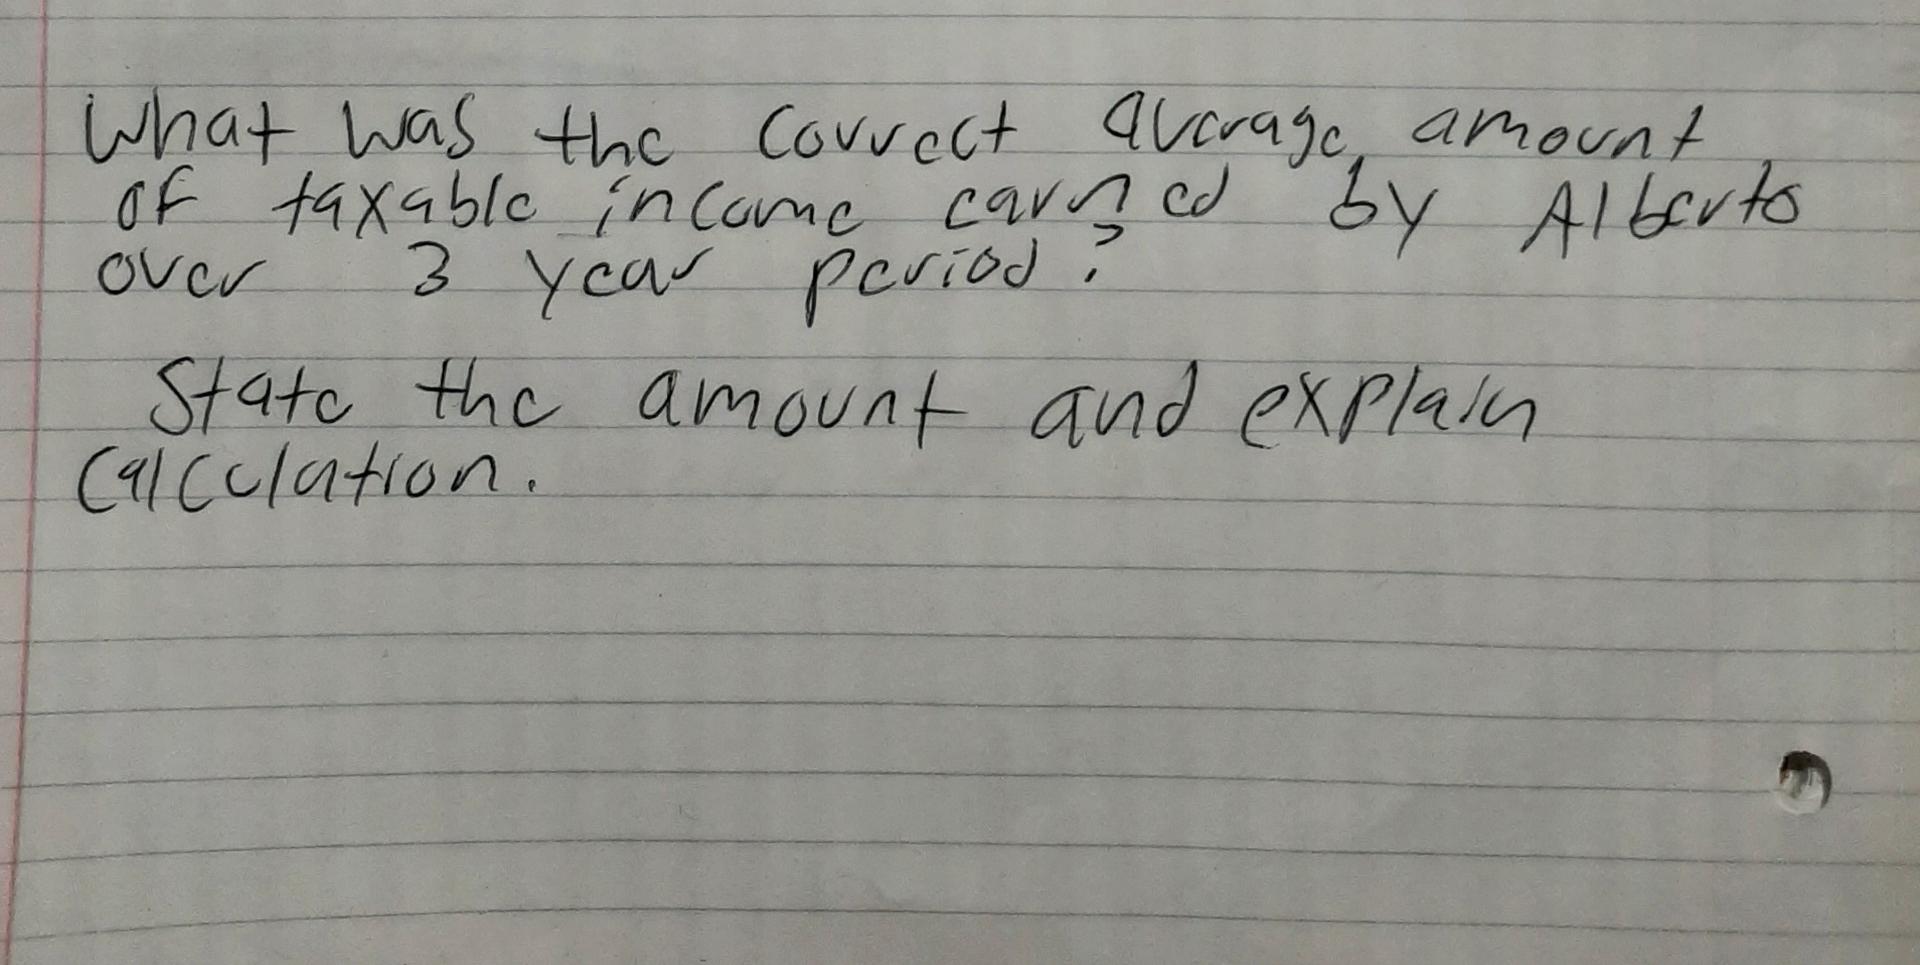 What was the correct average amount
of taxable income earned by Alberto
over 3 year period?
State the amount and explain
calculation.